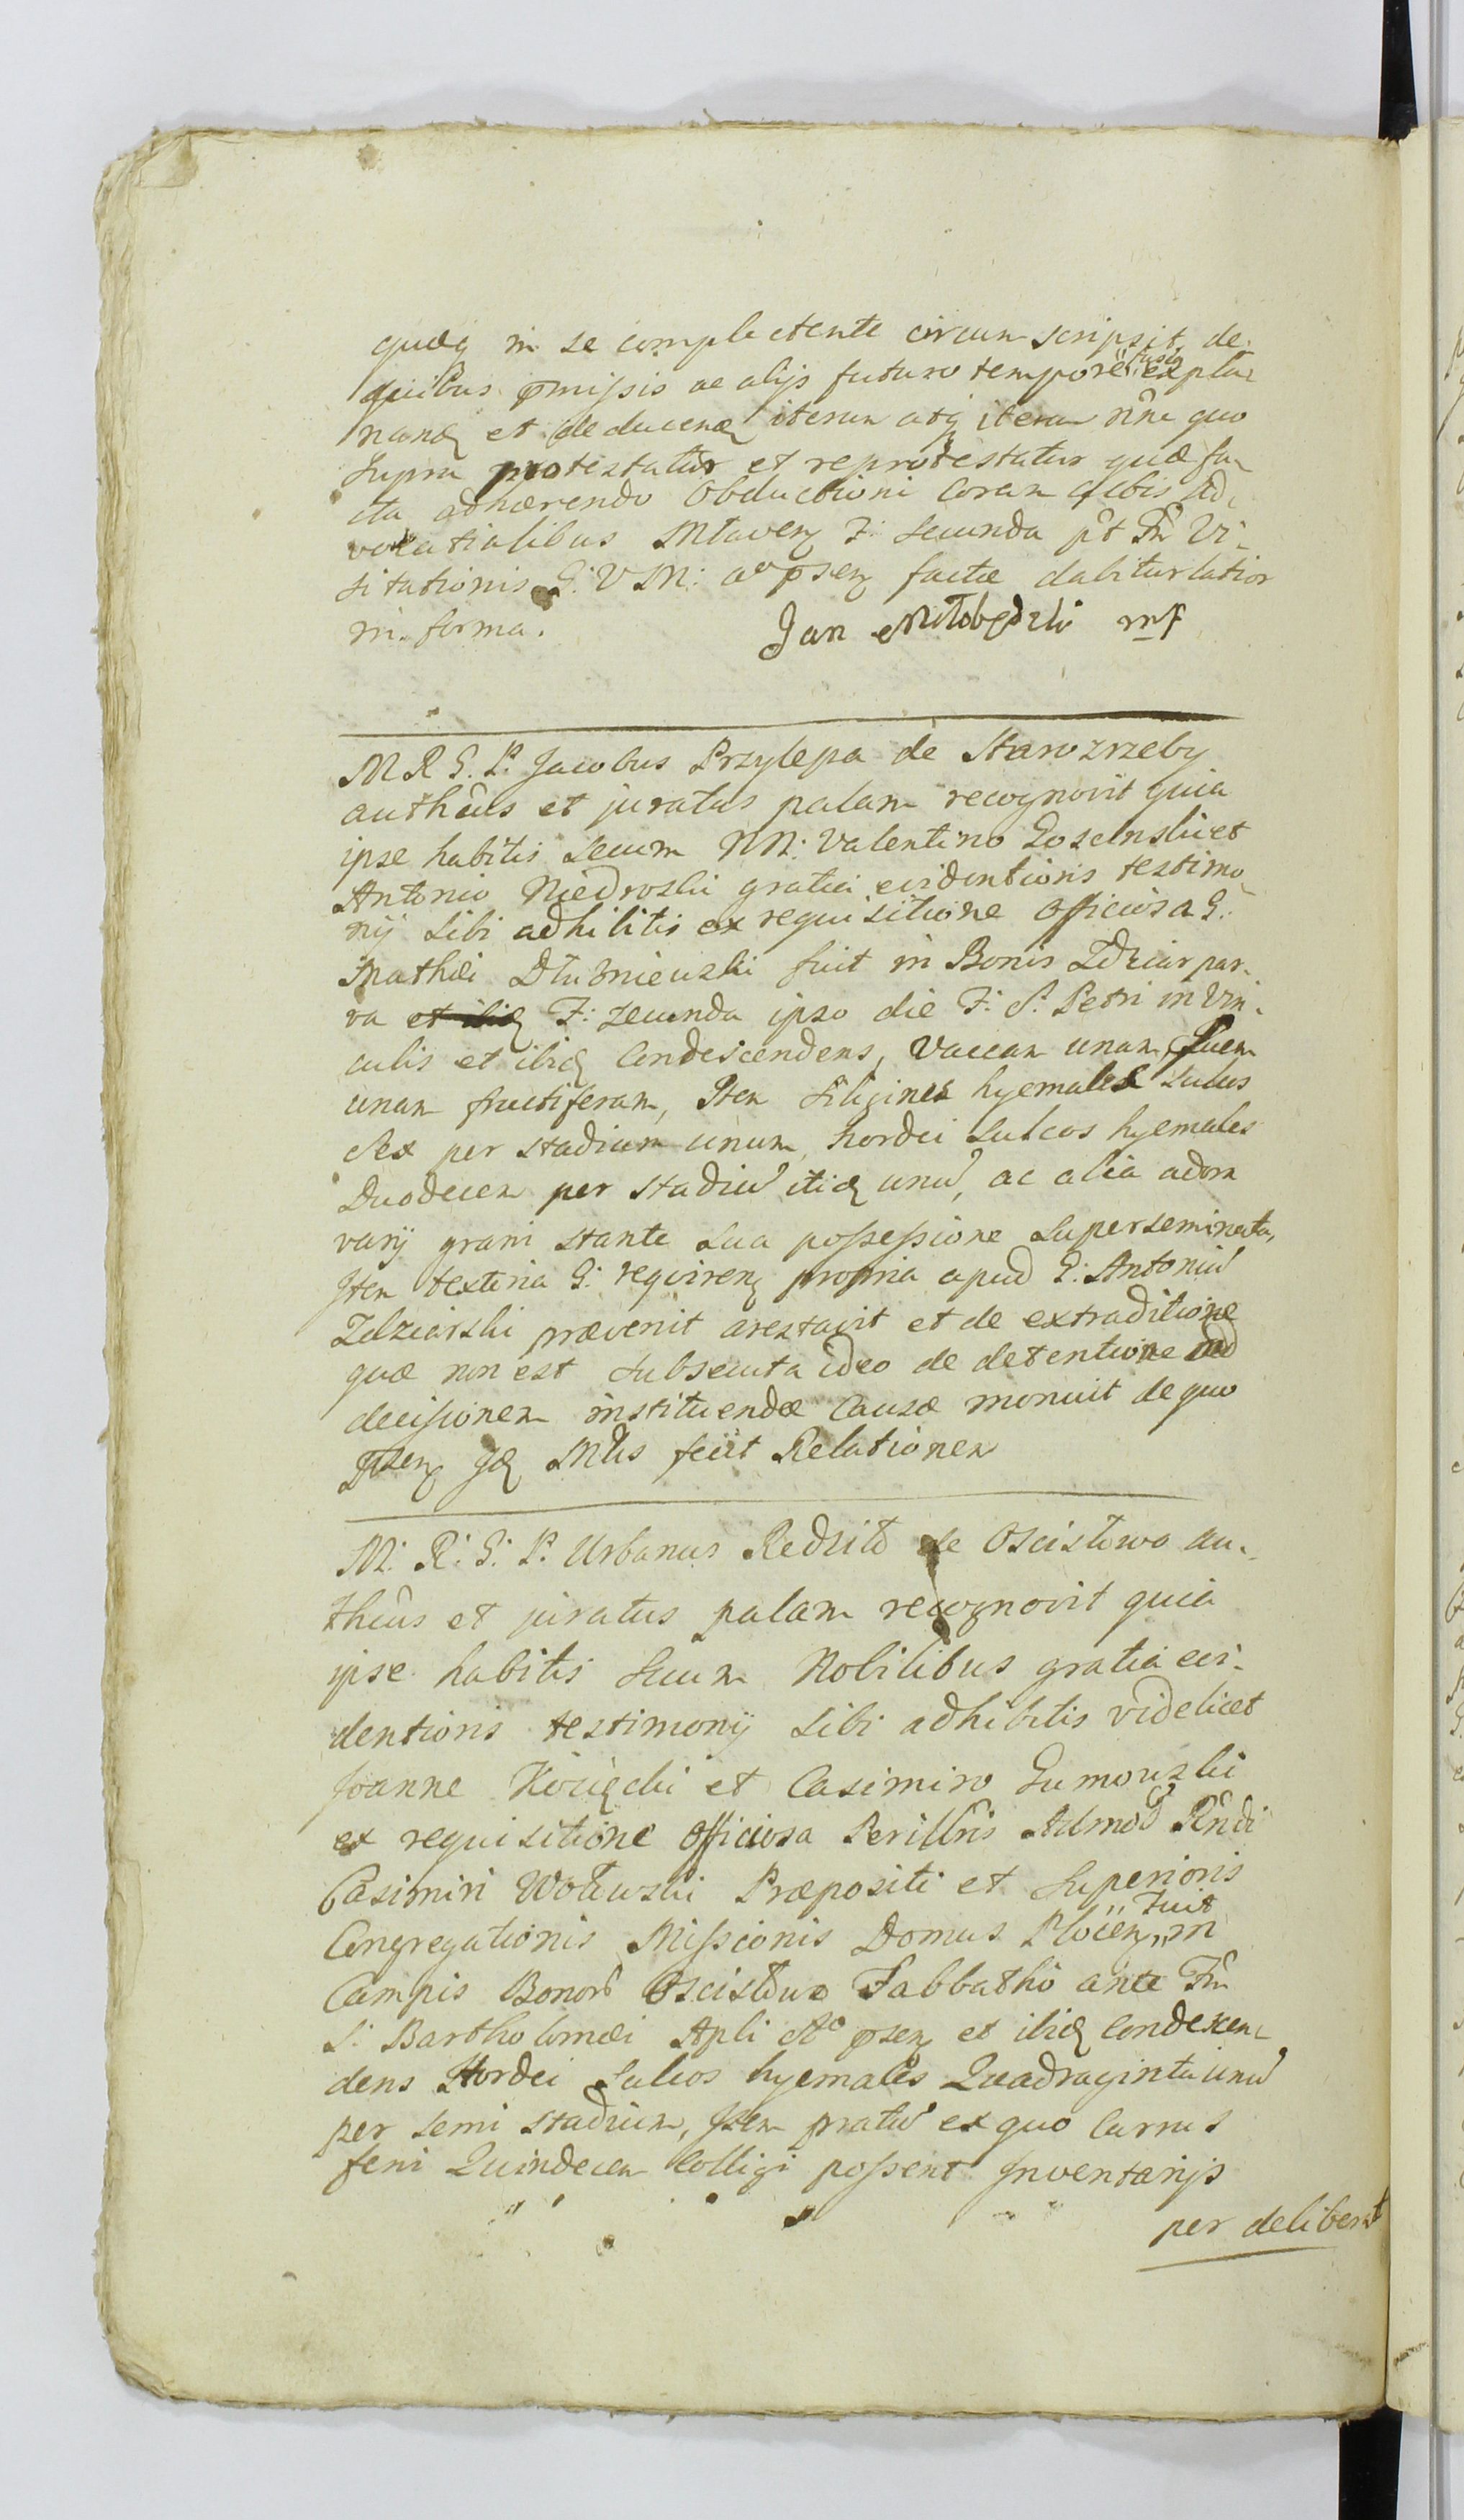 quæq in se complectente circum scripsit, de
quibus pmissis ac alijs futuro tempore fusiq expla-
nand et deducend iterum atq iterum nne quo
supra protestatur et reprotestatur quæ fa-
cta adhærendo Obductioni coram actis Ad-
vocatialibus Mlaven F: secunda pt Fm Vi-
sitationis B: V M: ao psen factæ dabitur latior
in forma.
Jan Miłobędzki mp
M R G. P. Jacobus Przylepa de Starozrzeby
authcus et juratus palam recognovit quia
ipse habitis secum NN: Valentino Goscinski et
Antonio Niedroski gratia evidentioris testimo-
nij sibi adhibitis ex requisitione Officiosa G.
Mathæi Dłuzniewski fuit in Bonis Zdziar par-
va et ibid F: secunda ipso die F: S. Petri in Vin-
culis et ibid Condescendens, Vaccam unam, Suem
unam fructiferam, Item Siliginis hyemales Sulcos
Sex per stadium unum, hordei Sulcos hyemales
Duodecem per stadiu itid unu, ac alia adora
varij grani stante sua possessione superseminata,
Item textoria G: requiren propria apud G: Antoniu
Zdziarski prævenit arestavit et de extraditione
quæ non est subsecuta ideo de detentione ad
decisionem instituendæ Causæ monuit de quo
Psen Id Mlis fecit Relationem
M: R: G: P. Urbanus Redzik de Oscisłowo au-
thcus et juratus palam recognovit quia
ipse habitis secum Nobilibus gratia evi-
dentioris testimonij sibi adhibitis videlicet
Joanne Kocięcki et Casimiro Gumowski
ex requisitione Officiosa Perillris Admod Rndi
Casimiri Wołowski Præpositi et Superioris
Congregationis Missionis Domus Plocen fuit in
Campis Bonor Oscisłowo Sabbatho ante Fm
S: Bartholomæi Apli Ao psen et ibid Condescen-
dens Hordei Sulcos hyemales Quadraginta unu
per semi stadium, Item pratu ex quo Currus
feni Quindecem Colligi possent Inventarijs
per deliberat